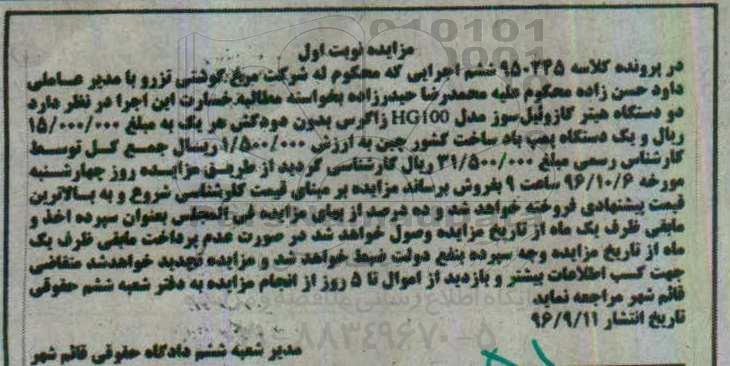 مزایده نوبت اول
در پرونده کلاسه ۹۵۰۲۲۵ ششم اجرایی که محکوم له شرکت مرغ گوشتی نزرو با مدیر عاملی
داود حسن زاده محکوم علیه محمدرضا حیدرزاده بخواسته مطالبه خسارت این اجرا در نظر دارد
دو دستگاه هیتر گازوئیل سوز مدل HG100 زاگرس بدون دودکش هر یک به مبلغ ۱۵/۰۰۰/۰۰۰
ریال و یک دستگاه پمپ باد ساخت کشور چین به ارزش ۱/۵۰۰/۰۰۰ ریسال جمع کل توسط
کارشناس رسمی مبلغ ۳۱/۵۰۰/۰۰۰ ریال کارشناسی گردید از طریق مزایده روز چهارشنبه
مورخه ۹۶/۱۰/۶ ساعت ۹ بفروش برساند مزایده بر مبنای قیمت کارشناسی شروع و به بالاترین
قیمت پیشنهادی فروخته خواهد شد و ده درصد از بهای مزایده فی المجلس بعنوان سپرده اخذ و
مابقی ظرف یک ماه از تاریخ مزایده وصول خواهد شد در صورت عدم پرداخت مابقی ظرف یک
ماه از تاریخ مزایده وجه سپرده بنفع دولت ضبط خواهد شد و مزایده تجدید خواهدشد متقاضی
جهت کسب اطلاعات بیشتر و بازدید از اموال تا ۵ روز از انجام مزایده به دفتر شعبه ششم حقوقی
قائم شهر مراجعه نماید
تاریخ انتشار ۹۶/۹/۱۱
مدیر شعبه ششم دادگاه حقوقی قائم شهر